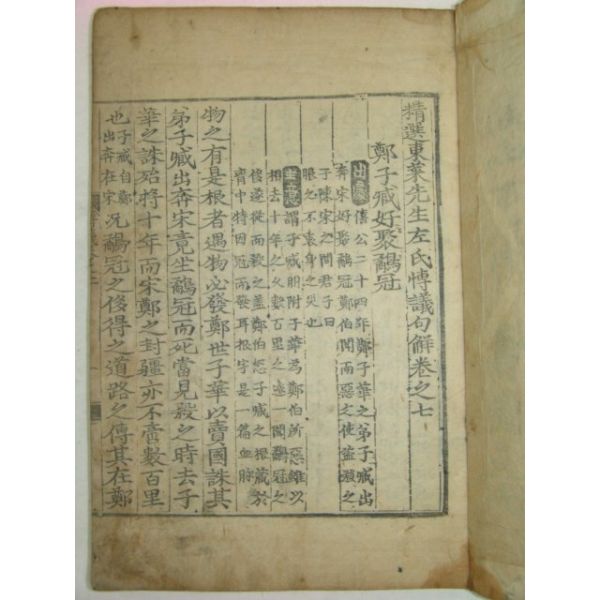 精選東萊先生左氏博議句解卷之七
鄭子臧好聚鷸冠
出處 僖公二十四年鄭子華之弟子臧出
奔宋好聚鷸冠鄭伯聞而惡之使盜殺之
于陳宋之間君子曰
服之不衷身之災也
主意 謂子臧朋附子華為鄭伯所惡雖以
相去十年之久數百里之遠一聞鷸冠之
侈遂從而殺之盖鄭伯怒子臧之根藏於
胷中特因冠而發耳根字是一篇血脉
物之有是根者遇物必發鄭世子華以賣國誅其
弟子臧出奔宋竟坐鷸冠而死當見殺之時去子
華之誅殆將十年而宋鄭之封疆亦不啻數百里
也子臧自鄭出奔在宋況鷸冠之侈得之道路之傳其在鄭